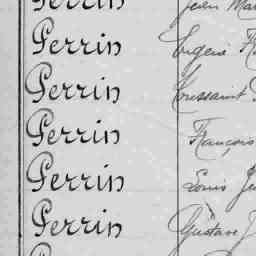 Perrin Jean
Perrin Eugène
Perrin Toussaint
Perrin François
Perrin Louis
Perrin Gustave